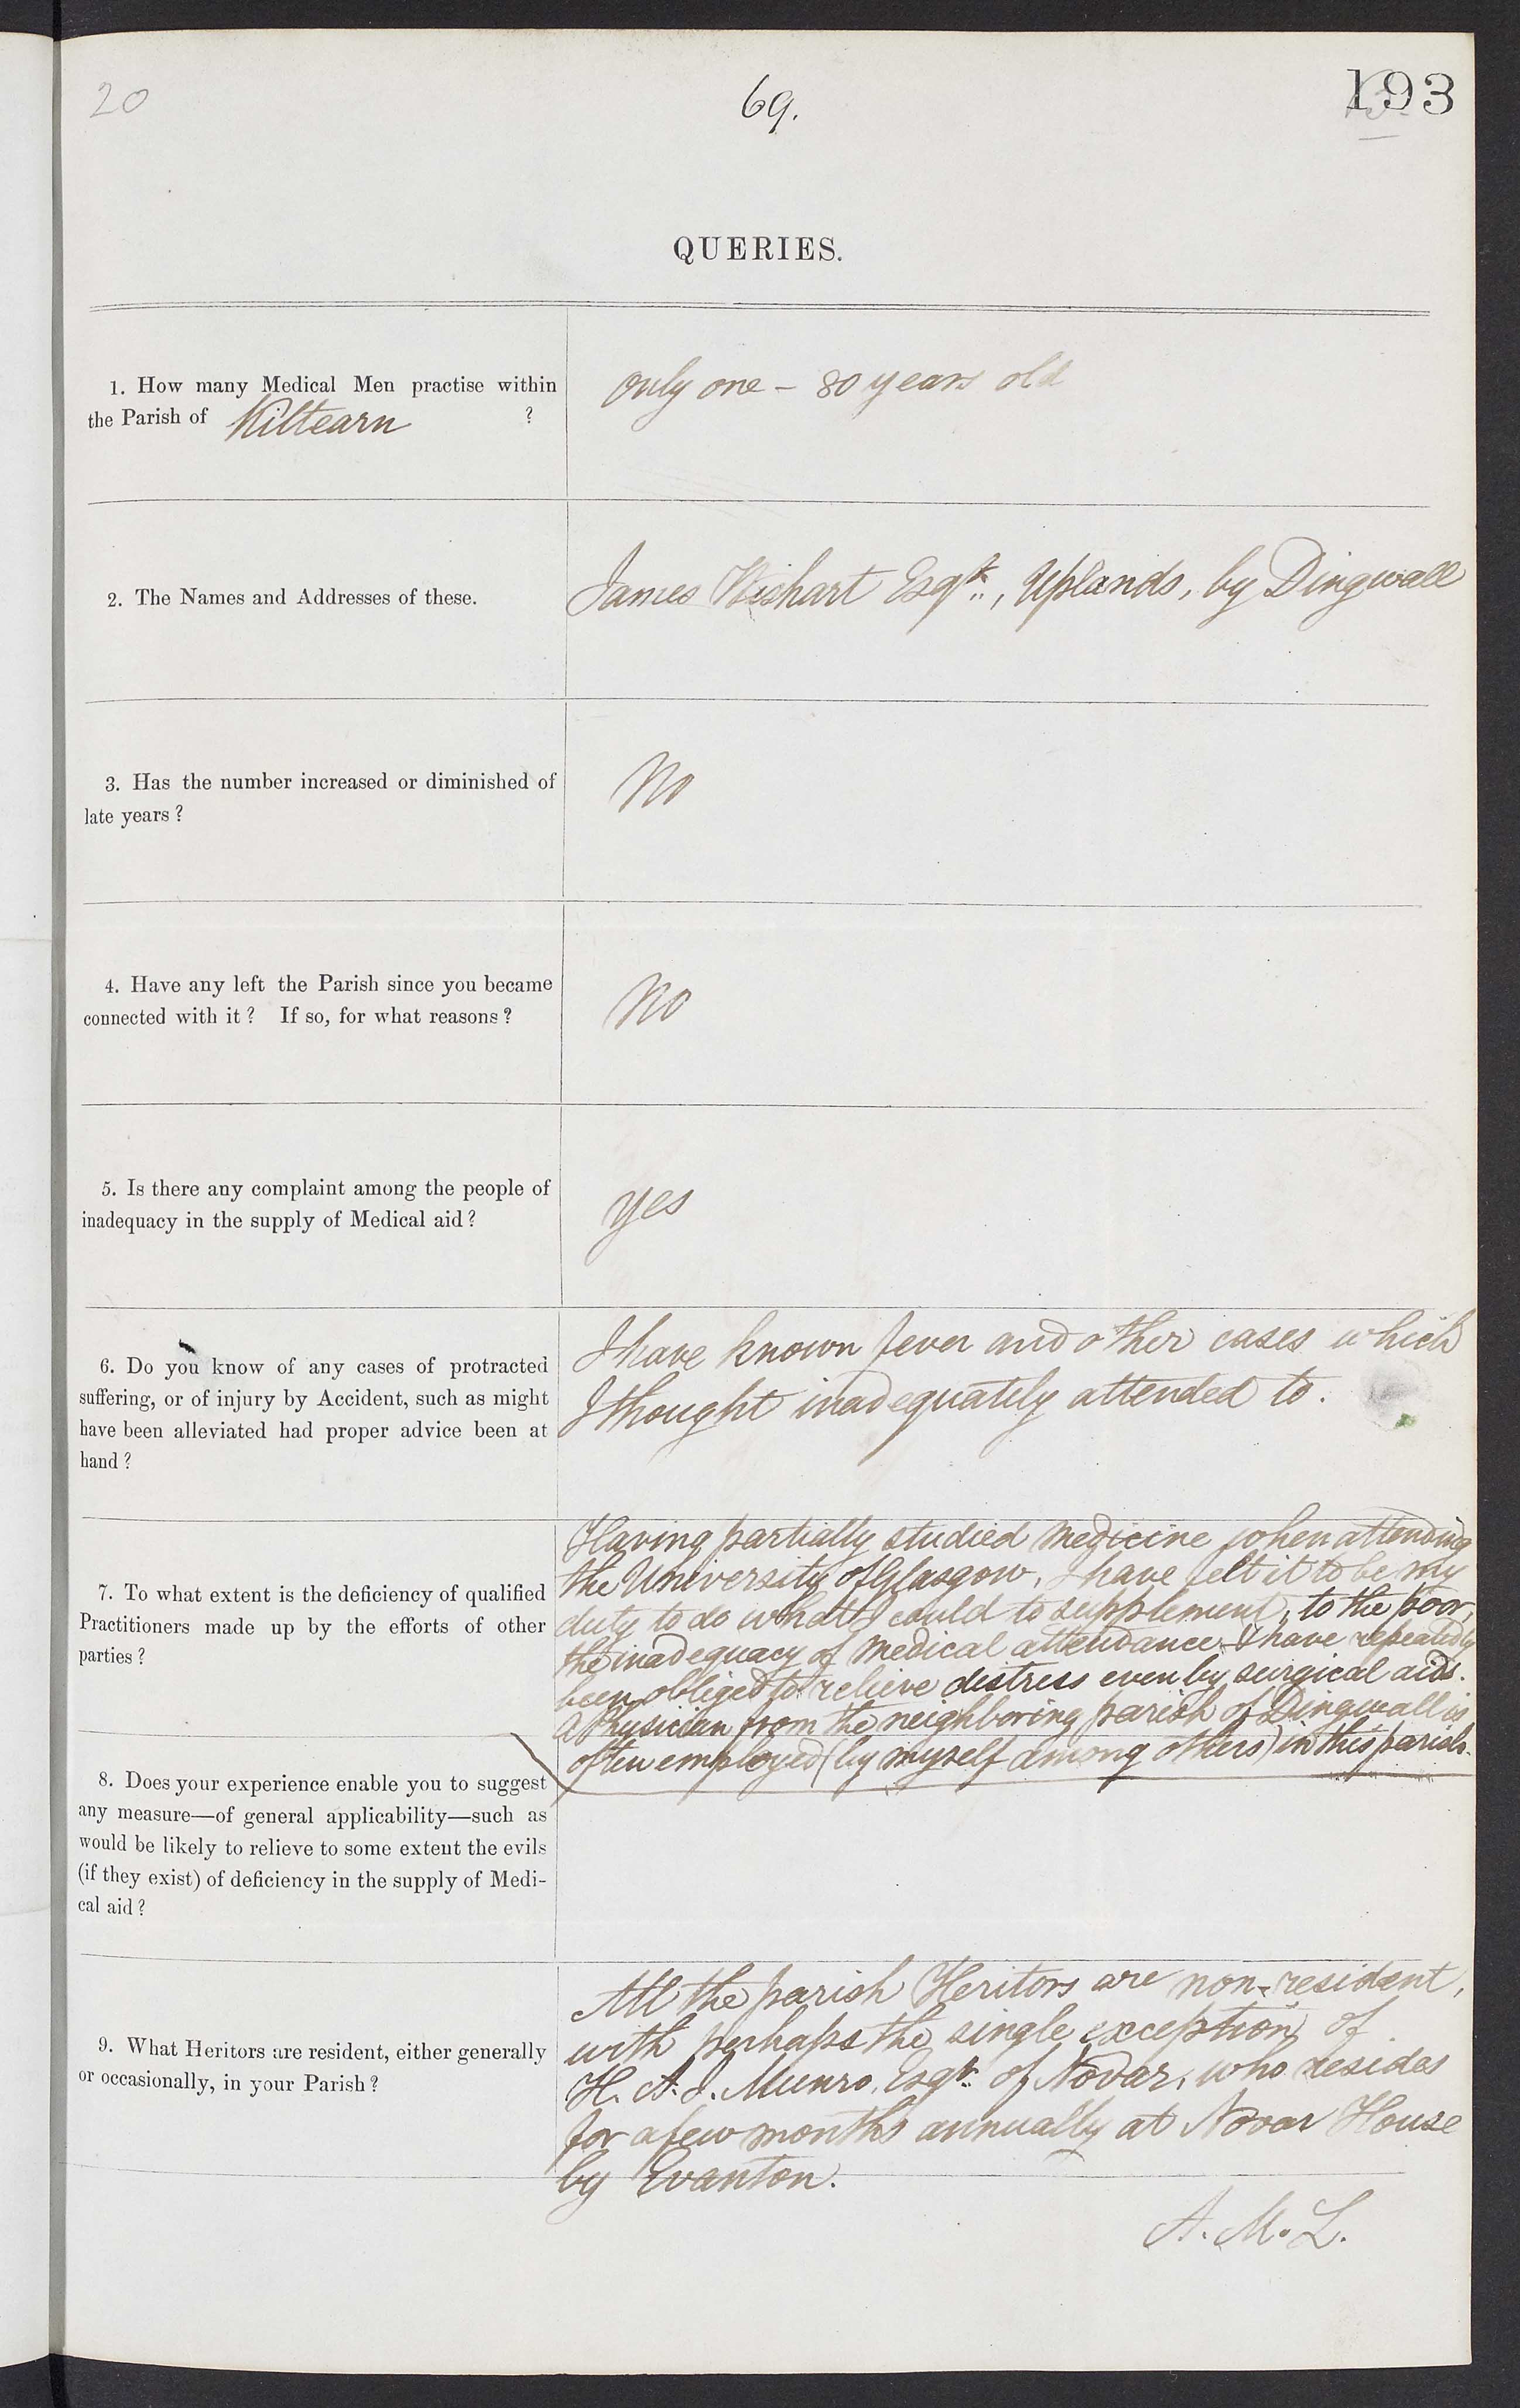 20
69.
193
QUERIES.
1. How many Medical Men practise within
the Parish of Kiltearn ?
Only one - 80 years old
2. The Names and Addresses of these.
James Wishart Esqr., Uplands, by Dingwall
3. Has the number increased or diminished of
late years ?
No
4. Have any left the Parish since you became
connected with it ? If so, for what reasons ?
No
5. Is there any complaint among the people of
inadequacy in the supply of Medical aid ?
yes
6. Do you know of any cases of protracted
suffering, or of injury by Accident, such as might
have been alleviated had proper advice been at
hand ?
I have known fever and other cases which
I thought inadequately attended to.
7. To what extent is the deficiency of qualified
Practitioners made up by the efforts of other
parties ?
Having partially studied medicine when attending
the University of Glasgow, I have felt it to be my
duty to do what I could to supplement, to the poor,
the inadequacy of medical attendance & have repeatedly
been obliged to relieve distress even by surgical aids.
A Physician from the neighboring parish of Dingwall is
often employed (by myself among others) in this parish.
8. Does your experience enable you to suggest
any measure—of general applicability—such as
would be likely to relieve to some extent the evils
(if they exist) of deficiency in the supply of Medi-
cal aid ?
9. What Heritors are resident, either generally
or occasionally, in your Parish ?
All the parish Heritors are non-resident,
with perhaps the single exception of
H. A. J. Munro, Esqr. of Novar, who resides
for a few months annually at Novar House
by Evanton.
A. M. L.